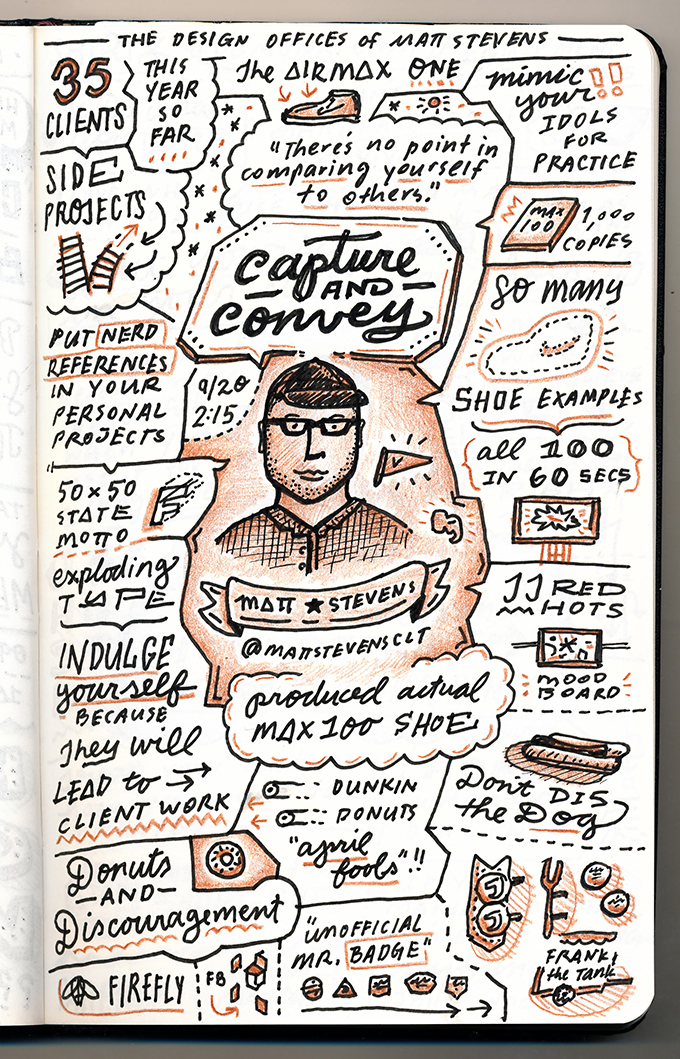 THE DESIGN OFFICES of MATT STEVENS
35
CLIENTS
THIS
YEAR
SO
FAR
The AIRMAX ONE
mimic
your!!
IDOLS
FOR
PRACTICE
"There's no point in
comparing yourself
to others."
SIDE
PROJECTS
MAX
100
1,000
COPIES
capture
AND
convey
SO MANY
SHOE EXAMPLES
PUT NERD
REFERENCES
IN YOUR
PERSONAL
PROJECTS
9/20
2:15
all 100
IN 60 SECS
50x50
STATE
MOTTO
exploding
TYPE
JJ RED
HOTS
MOOD
BOARD
MATT ★ STEVENS
@MATTSTEVENSCLT
INDULGE
yourself
BECAUSE
They will
LEAD to
CLIENT WORK
produced actual
MAX100 SHOE
DUNKIN
DONUTS
"april
fools"!!
Don't DIS
the Dog
Donuts
AND
Discouragement
"UNOFFICIAL
MR. BADGE"
FRANK
the Tank
FIREFLY
FB